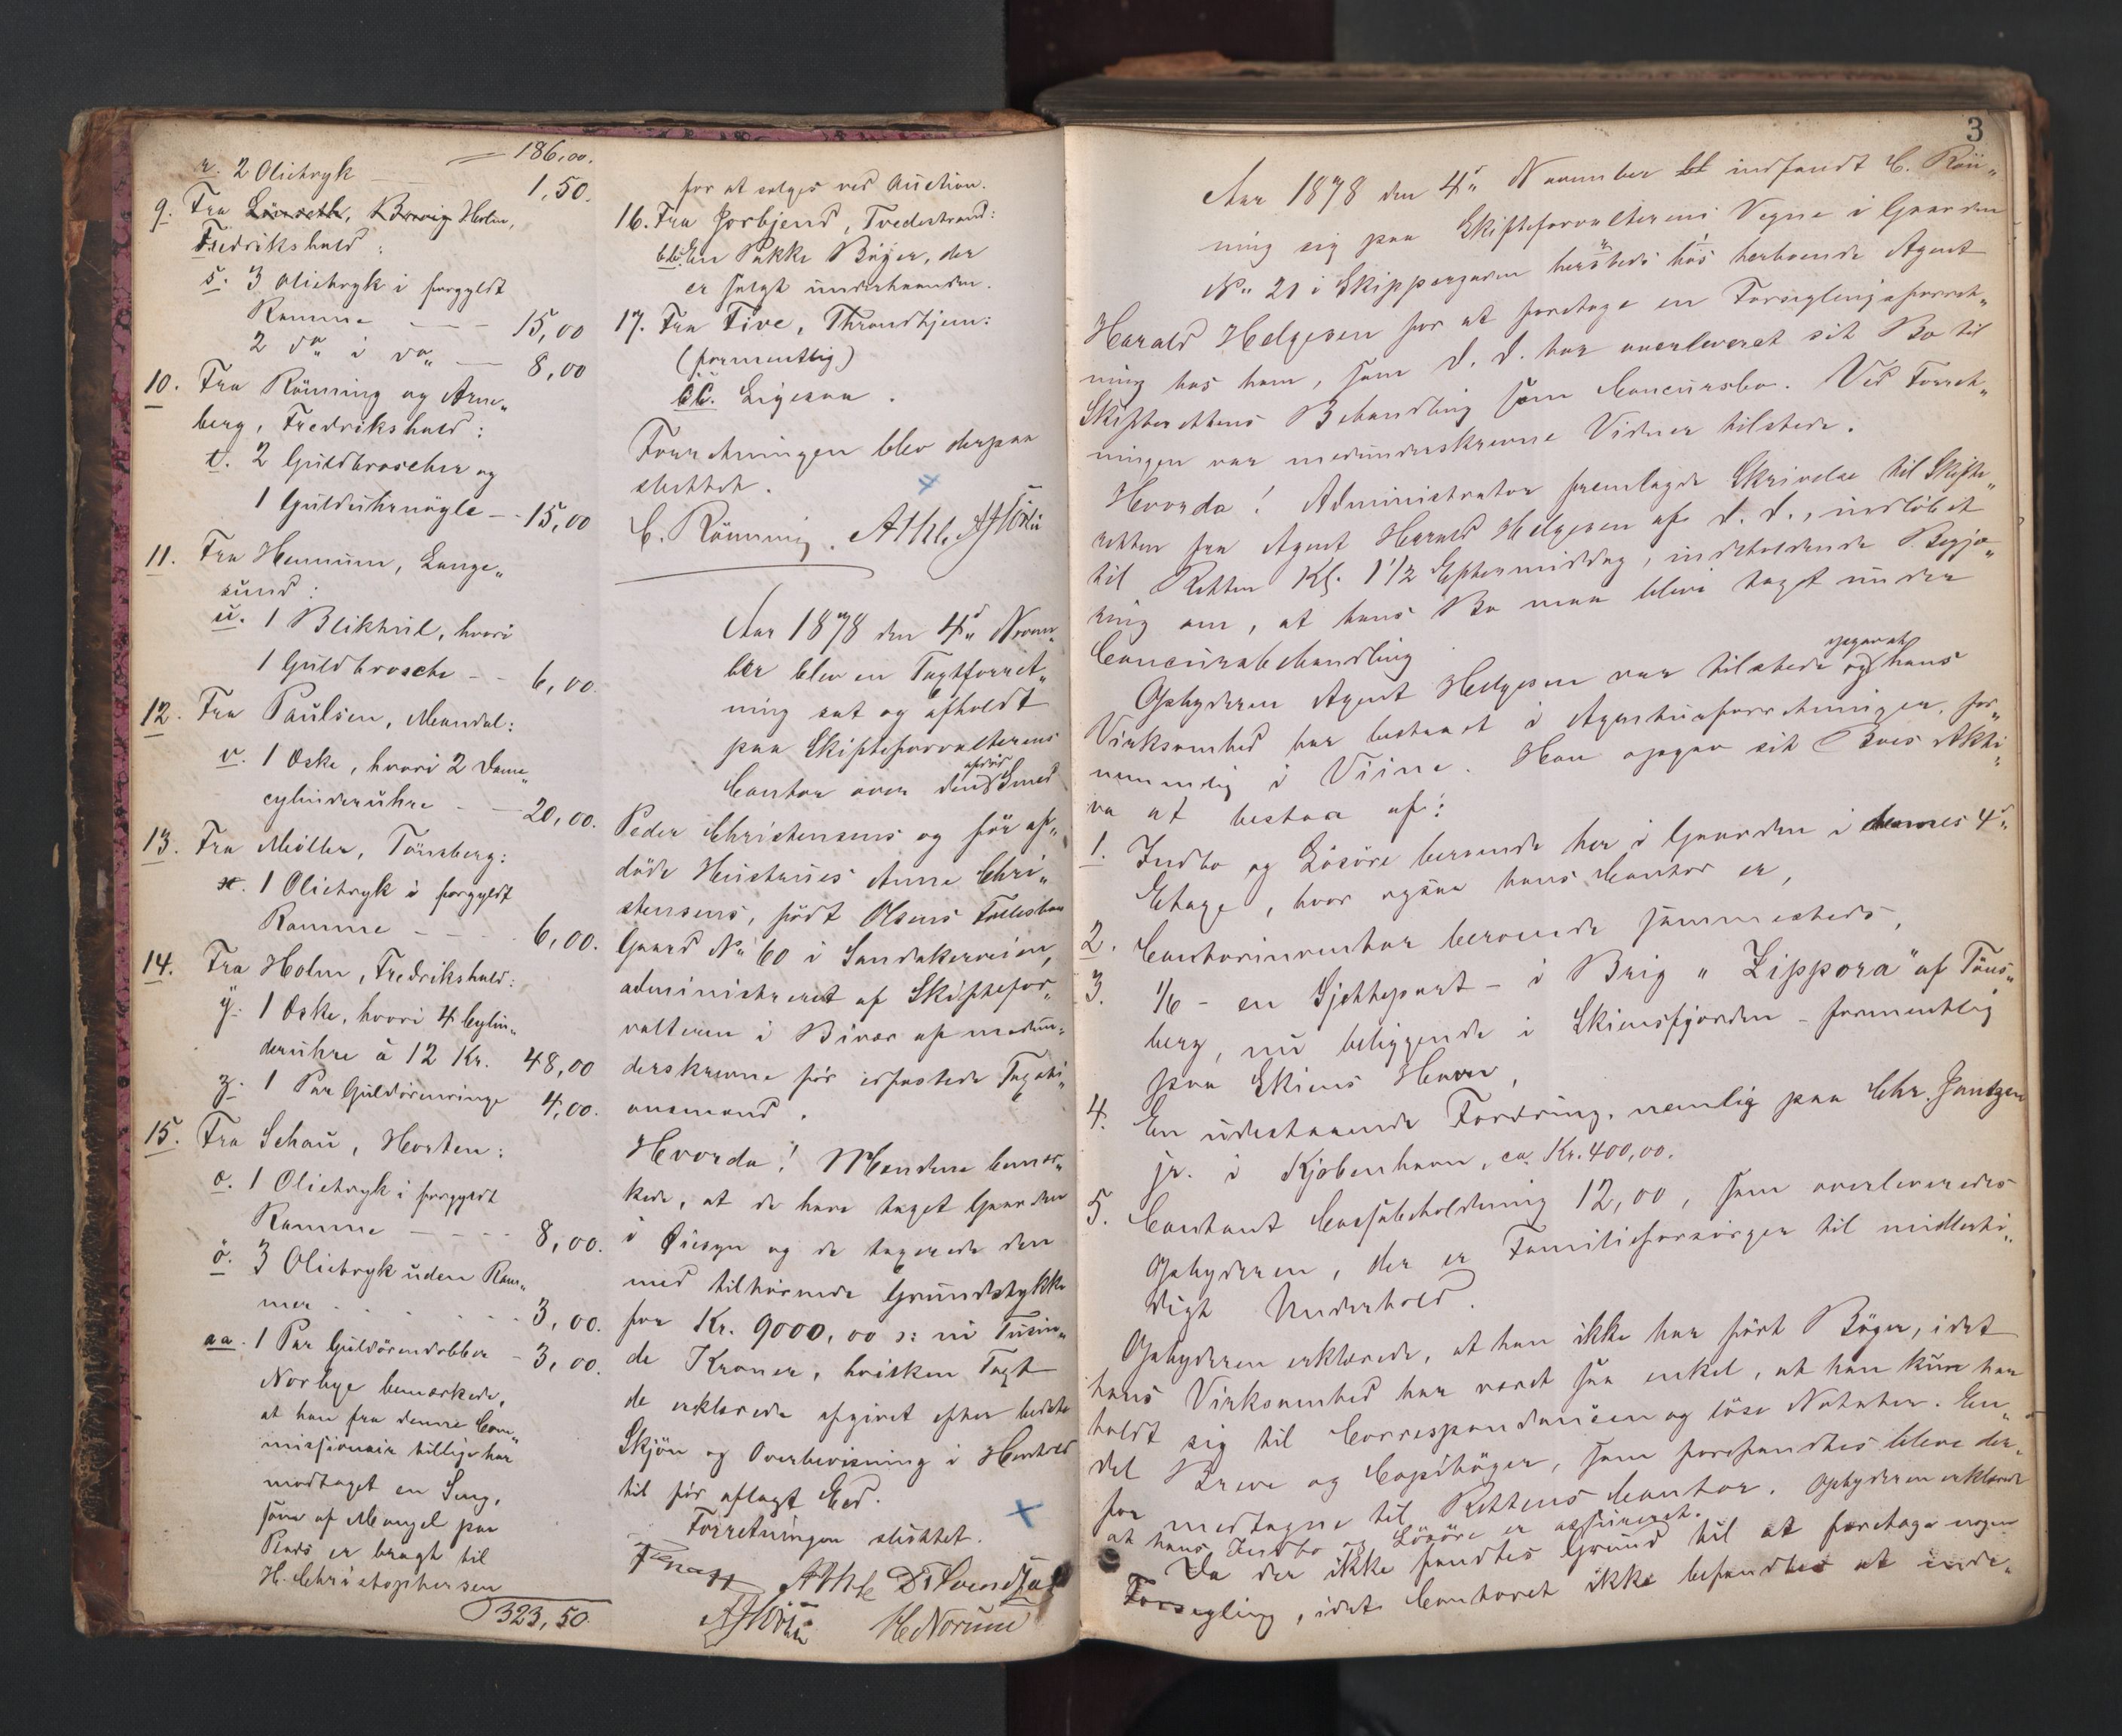 186,00.
r. 2 Olietryk — 1,50.
9. Fra Lövseth, Brevig Holm,
Fredrikshald:
s. 3 Olietryk i forgyldt
Ramme — 15,00
2 do i do — 8,00
10. Fra Rönning og Arne„
berg, Fredrikshald:
t. 2 Guldbrocher og
1 Gulduhrnögle — 15,00
11. Fra Hennum, Lange„
sund:
u. 1 Blikhül, hvori
1 Guldbroche — 6,00.
12. Fra Paulsen, Mandal:
v. 1 Æske, hvori 2 Dame„
cylinderuhre — 20,00.
13. Fra Möller, Tönsberg:
x. 1 Olietryk i forgyldt
Ramme — 6,00.
14. Fra Holm, Fredrikshald:
y. 1 Æske, hvori 4 Cylin„
deruhre à 12 Kr. 48,00
z. 1 Par Guldörenringe 4,00.
15. Fra Schau, Horten:
æ. 1 Olietryk i forgyldt
Ramme — 8,00.
ö. 3 Olietryk uden Ram„
mer 3,00.
aa. 1 Par Guldörendobber — 3,00.
Norbye bemærkede,
at han fra denne Com„
missionair tillige har
modtaget en Seng,
som af Mangel paa
Plads er bragt til
H. Christophersen
323,50
for at sælges ved Auction.
16. Fra Jorkjend, Tvedestrand:
bb. En Pakke Böger, der
er solgt underhaanden.
17. Fra Five, Throndhjem:
(formentlig)
cc. Ligesaa.
Forretningen blev derpaa
sluttet.
C. Rönning.
Aar 1878 den 4d„ Novem„
ber blev en Taxtforret„
ning sat og afholdt
paa Skifteforvalterens
Contor over den afdöde Smed
Peder Christensens og för af„
döde Hustrues Anne Chri„
stensens, födt Olsens Fællesbos
Gaard No 60 i Sandakerveien,
administreret af Skiftefor„
valteren i Bivær af medun„
derskrevne för edfæstede Taxati„
onsmænd.
Hvorda! Mændene bemær„
kede, at de have taget Gaarden
i Öiesyn og de taxerede den
med tilhörende Grundstykke
for Kr. 9000,00 ɔ: ni Tusin„
de Kroner, hvilken Taxt
de erklærede afgivet efter bedste
Skjön og Overbevisning i Henhold
til för aflagt Eed.
Forretningen sluttet.
D. Svendsen
H. Norum
3
Aar 1878 den 4d„ November bl indfandt C. Rön„
ning sig paa Skifteforvalterens Vegne i Gaarden
No 21 i Skippergaden hersteds hos herboende Agent
Harald Helgesen for at foretage en Forseglingsforret„
ning hos ham, som d. d. har overleveret sit Bo til
Skifterettens Behandling som Concursbo. Ved Forret„
ningen var medunderskrevne Vidner tilstede.
Hvorda! Administrator fremlagde Skrivelse til Skifte„
retten fra Agent Harald Helgesen af d. d., indlöbet
til Retten Kl. 1 1/2 Eftermiddag, indeholdende Begjæ„
ring om, at hans Bo maa blive taget under
Concursbehandling
Opbyderen Agent Helgesen var tilstede og opgav at hans
Virksomhed har bestaaet i Agenturforretninger, for„
nemmelig i Viine. Han opgav sit Boes Akti„
va at bestaa af:
1. Indbo og Lösöre beroende her i Gaarden i dennes 4de
Etage, hvor ogsaa hans Contor er,
2. Contorinventar beroende sammesteds,
3. 1/6 - en Sjettepart - i Brig "Zippora" af Töns„
berg, nu beliggende i Skiensfjorden - formentlig
paa Skiens Havn,
4. En udestaaende Fordring, nemlig paa Chr. Jantzen
jr. i Kjöbenhavn, ca. Kr. 400,00.
5. Contant Cassabeholdning 12,00, som overleveredes
Opbyderen, der er Familieforsörger til midlerti„
digt Underhold.
Opbyderen erklærede, at han ikke har fört Böger, idet
hans Virksomhed har været saa enkel, at han kun har
holdt sig til Correspondancen og löse Notater. En„
del Breve og Copiböger, som forefandtes bleve der„
for medtagne til Rettens Contor. Opbyderen erklærede
at hans Indbo og Lösöre er assureret.
Da der ikke fandtes Grund til at foretage nogen
Forsegling, idet Contoret ikke befandtes at inde„